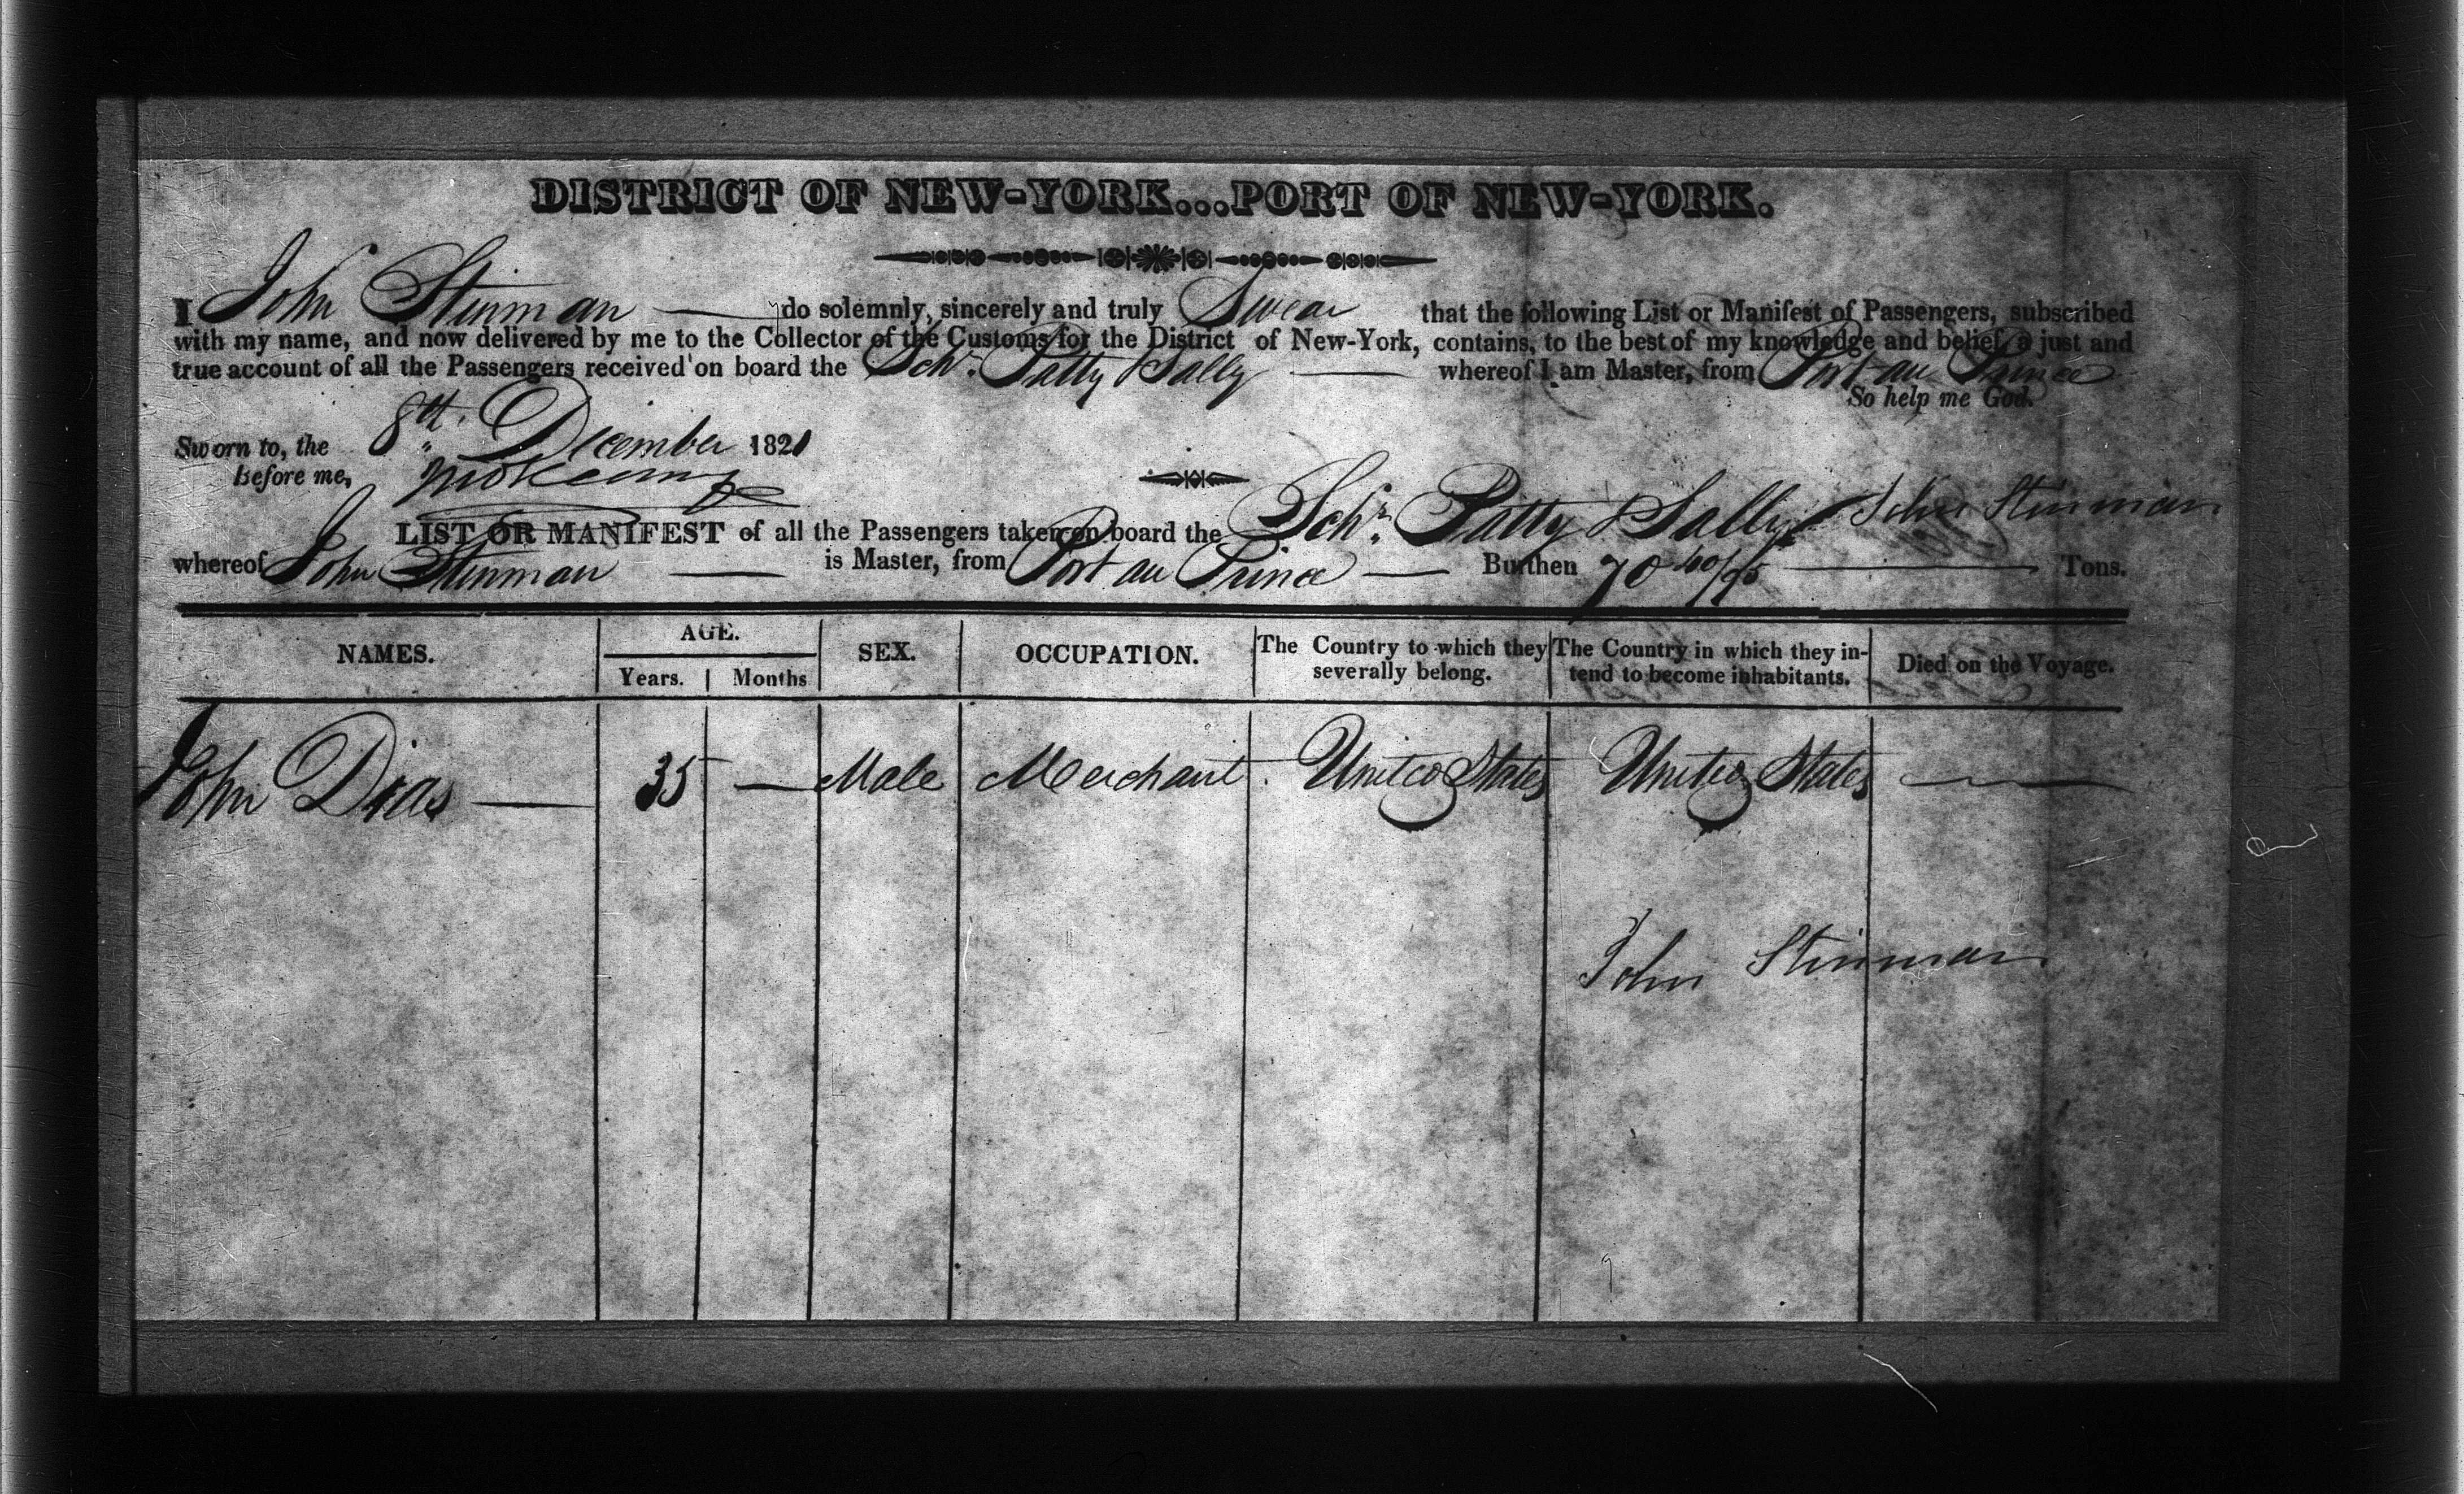 DISTRICT OF NEW-YORK...PORT OF NEW-YORK.
I John Stinman do solemnly, sincerely and truly Swear that the following List or Manifest of Passengers, subscribed
with my name, and now delivered by me to the Collector of the Customs for the District of New-York, contains, to the best of my knowledge and belief, a just and
true account of all the Passengers received on board the Schr. Patty & Sally whereof I am Master, from Port au Prince
So help me God.
Sworn to, the 8th. December 1821
Before me,
John Stinman
LIST OR MANIFEST of all the Passengers taken on board the Schr. Patty & Sally
whereof John Stinman is Master, from Port au Prince Burthen 70 40/95 Tons.
NAMES. AGE. SEX. OCCUPATION. The Country to which they severally belong. The Country in which they in-tend to become inhabitants. Died on the Voyage.
Years. Months
John Dias — 35 — Male Merchant United States United States —
John Stinman